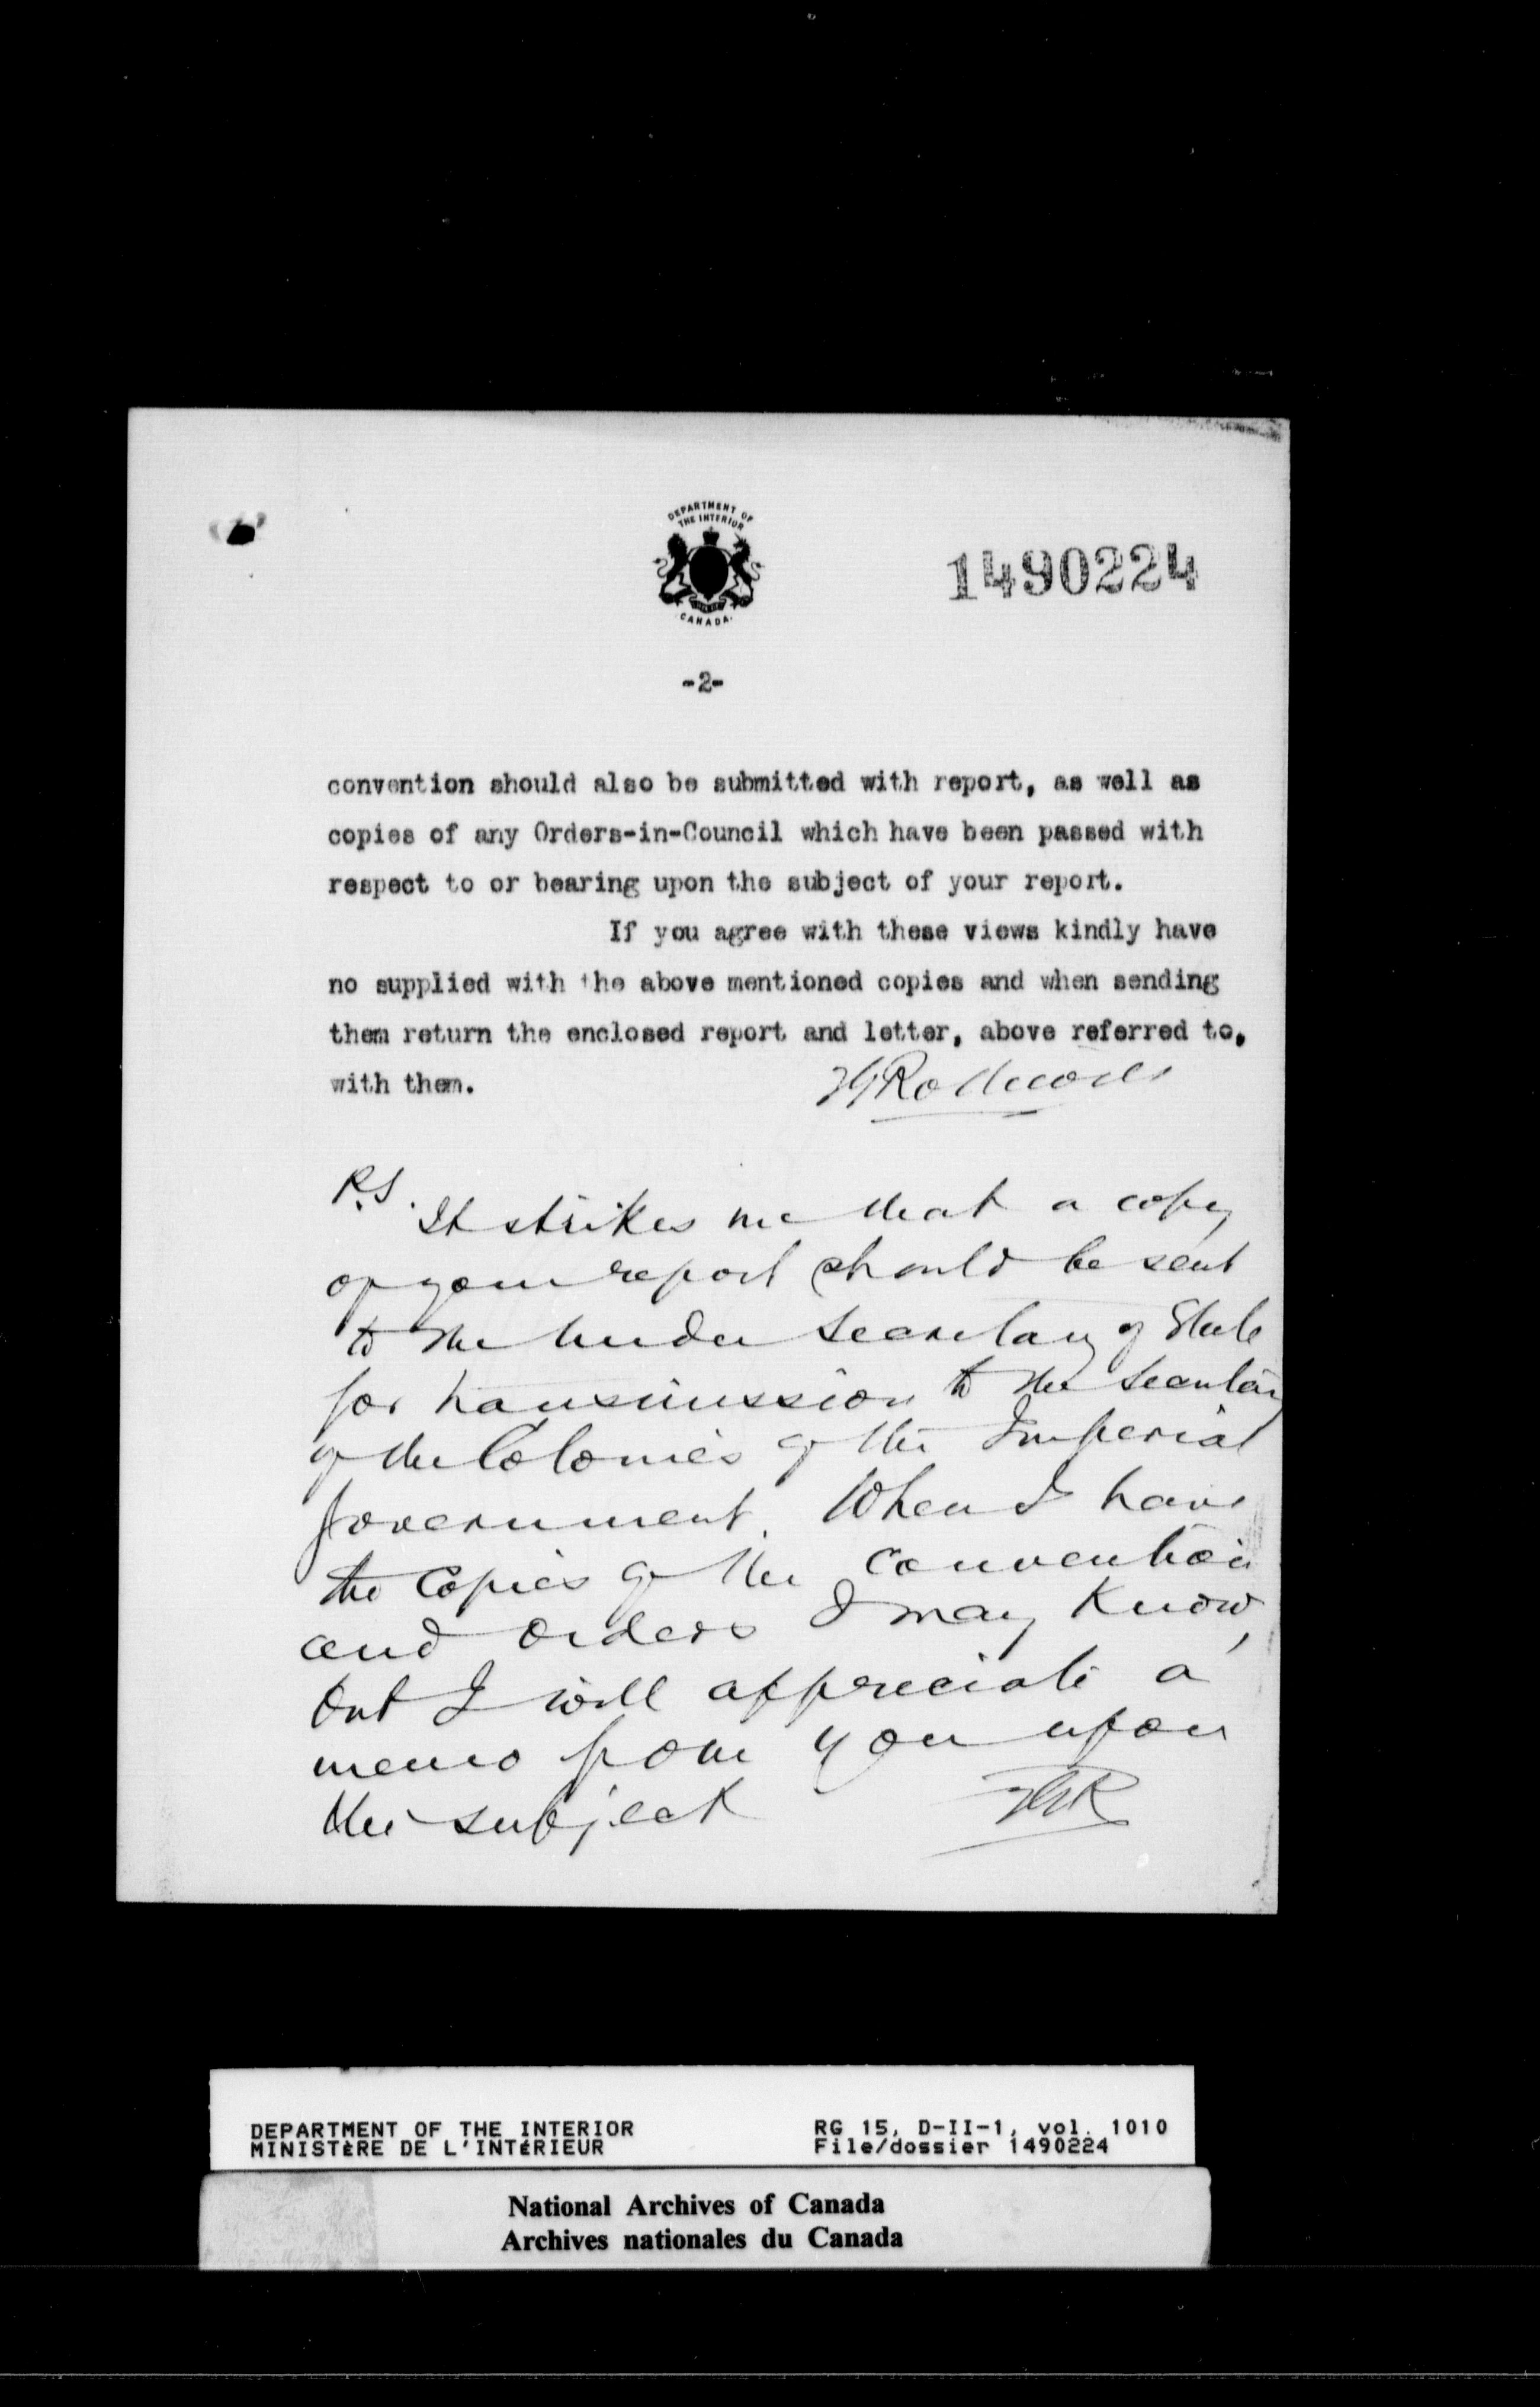 DEPARTMENT OF
THE INTERIOR
CANADA.
1490224
-2-
convention should also be submitted with report, as well as
copies of any Orders-in-Council which have been passed with
respect to or bearing upon the subject of your report.
If you agree with these views kindly have
no supplied with the above mentioned copies and when sending
them return the enclosed report and letter, above referred to,
with them.
P.S. It strikes me that a copy
of your report should be sent
to the Under Secretary of State
for transmission to the Secretary
of the Colonies of the Imperial
Government. When I have
the Copies of the Convention
and Orders I may Know,
but I will appreciate a
memo from you upon
the subject
HGR
DEPARTMENT OF THE INTERIOR
MINISTÈRE DE L'INTÉRIEUR
RG 15, D-II-1, vol. 1010
File/dossier 1490224
National Archives of Canada
Archives nationales du Canada